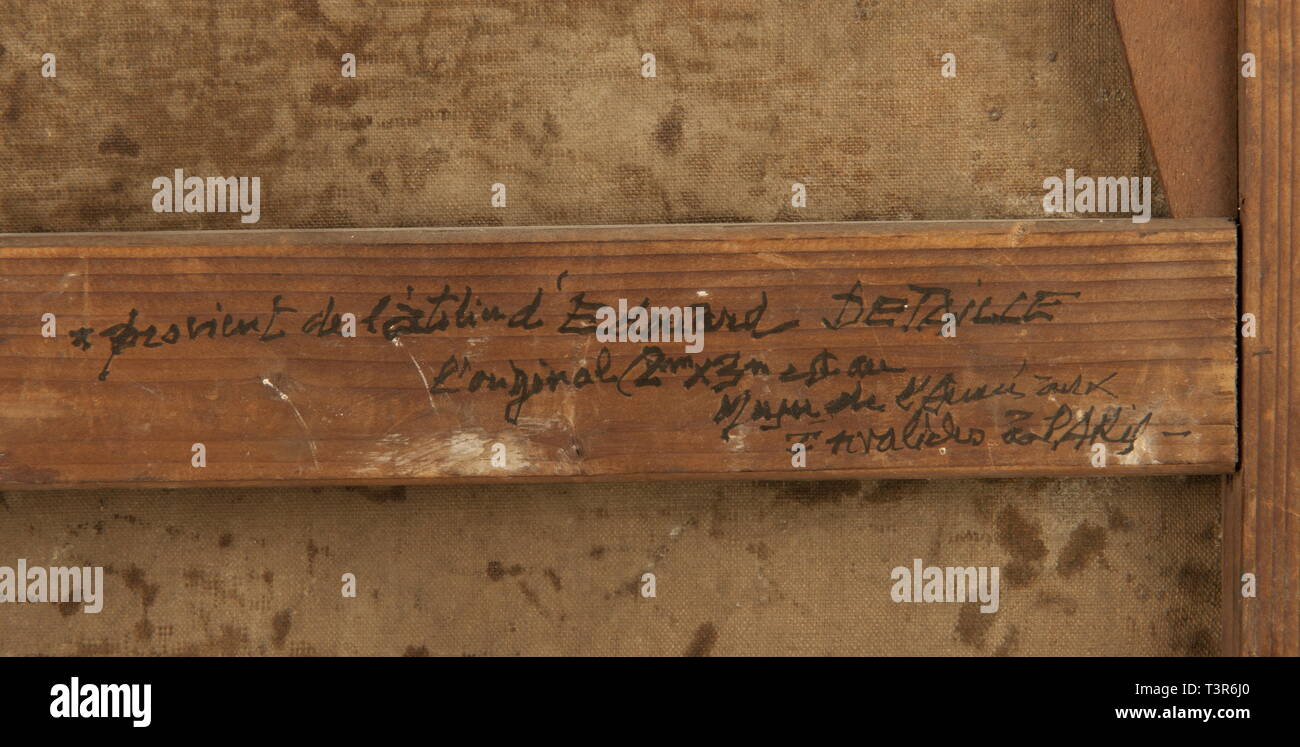 * provient de l'atelier d'Edouard DETAILLE
L'original (2m x 3m est au
Musée de l'Armée aux
Invalides à PARIS —
alamy
alamy
alamy
alamy
alamy
Image ID: T3R6J0
www.alamy.com